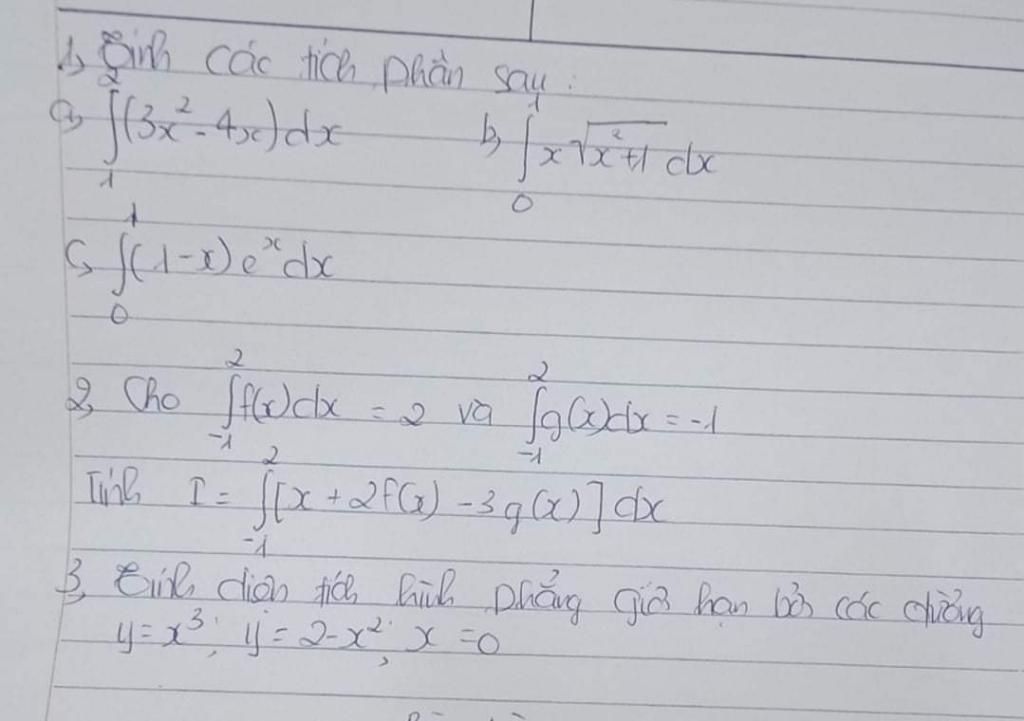 1, Tính các tích phân sau:
a, ∫₁²(3x² - 4x)dx b, ∫₀¹ x√(x²+1) dx
c, ∫₀¹(1-x)eˣdx
2, Cho ∫₋₁² f(x)dx = 2 và ∫₋₁² g(x)dx = -1
Tính I = ∫₋₁² [x + 2f(x) - 3g(x)] dx
3, Tính diện tích hình phẳng giới hạn bởi các đường
y = x³; y = 2 - x²; x = 0